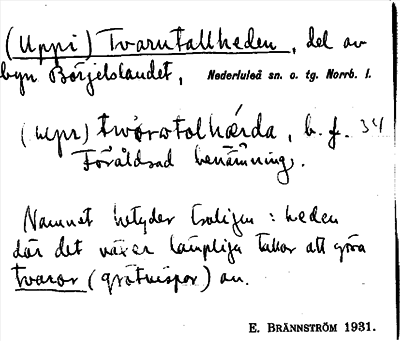 (Uppi) Tvarutallheden, del av
byn Börjelslandet, Nederluleå sn. o. tg. Norrb. l.
(upi) två̀rotalhǽrda, b. f. 34
Föråldrad benämning.
Namnet betyder troligen: heden
där det växer lämpliga tallar att göra
tvaror (grötvispar) av.
E. BRÄNNSTRÖM 1931.